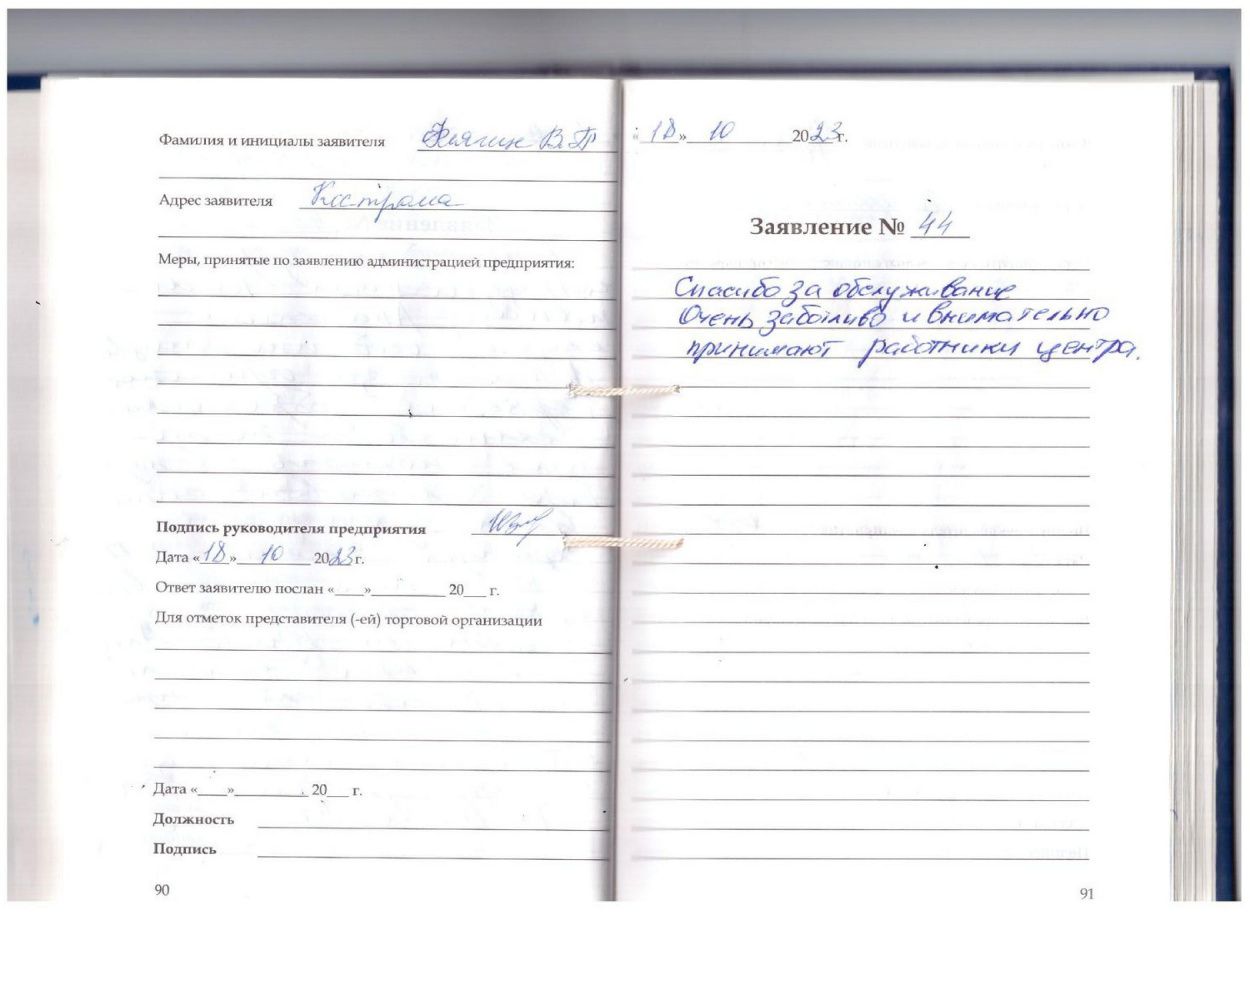 Фамилия и инициалы заявителя В.П
Адрес заявителя Кострома
Меры, принятые по заявлению администрацией предприятия:
Подпись руководителя предприятия
Дата «18» 10 2023 г.
Ответ заявителю послан «___»__________ 20___ г.
Для отметок представителя (-ей) торговой организации
Дата «____»__________ 20___ г.
Должность
Подпись
90
«18» 10 2023 г.
Заявление № 44
Спасибо за обслуживание
Очень заботливо и внимательно
принимают работники центра.
91